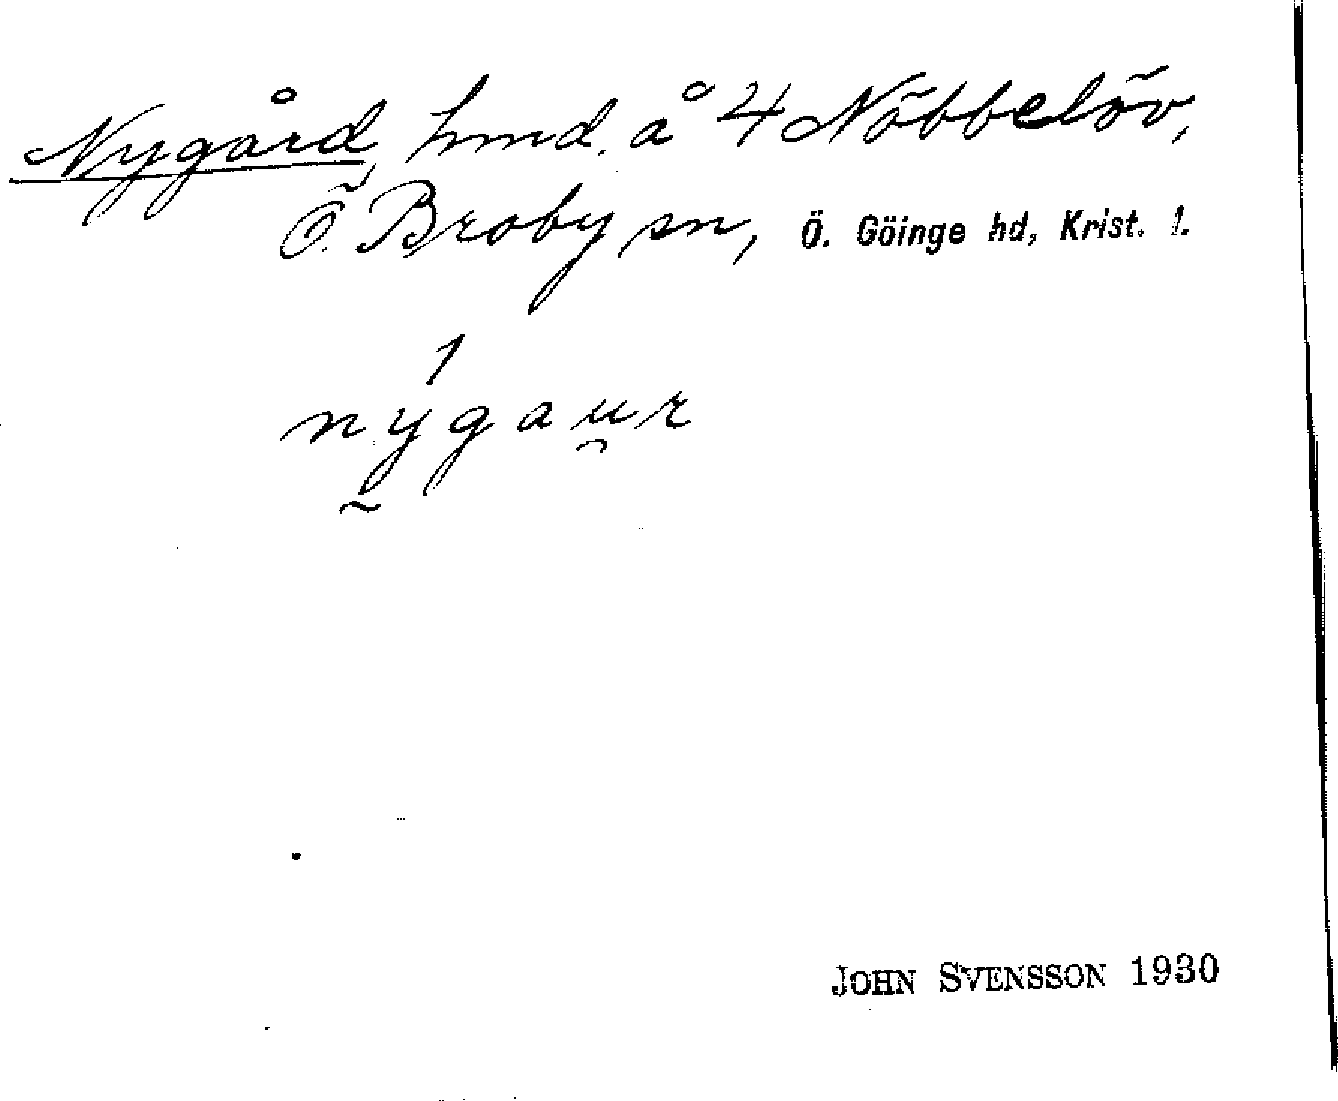 Nygård, hmd. å 4 Nöbbelöv,
Ö. Broby sn, Ö. Göinge hd, Krist. l.
nýgau̯r
JOHN SVENSSON 1930